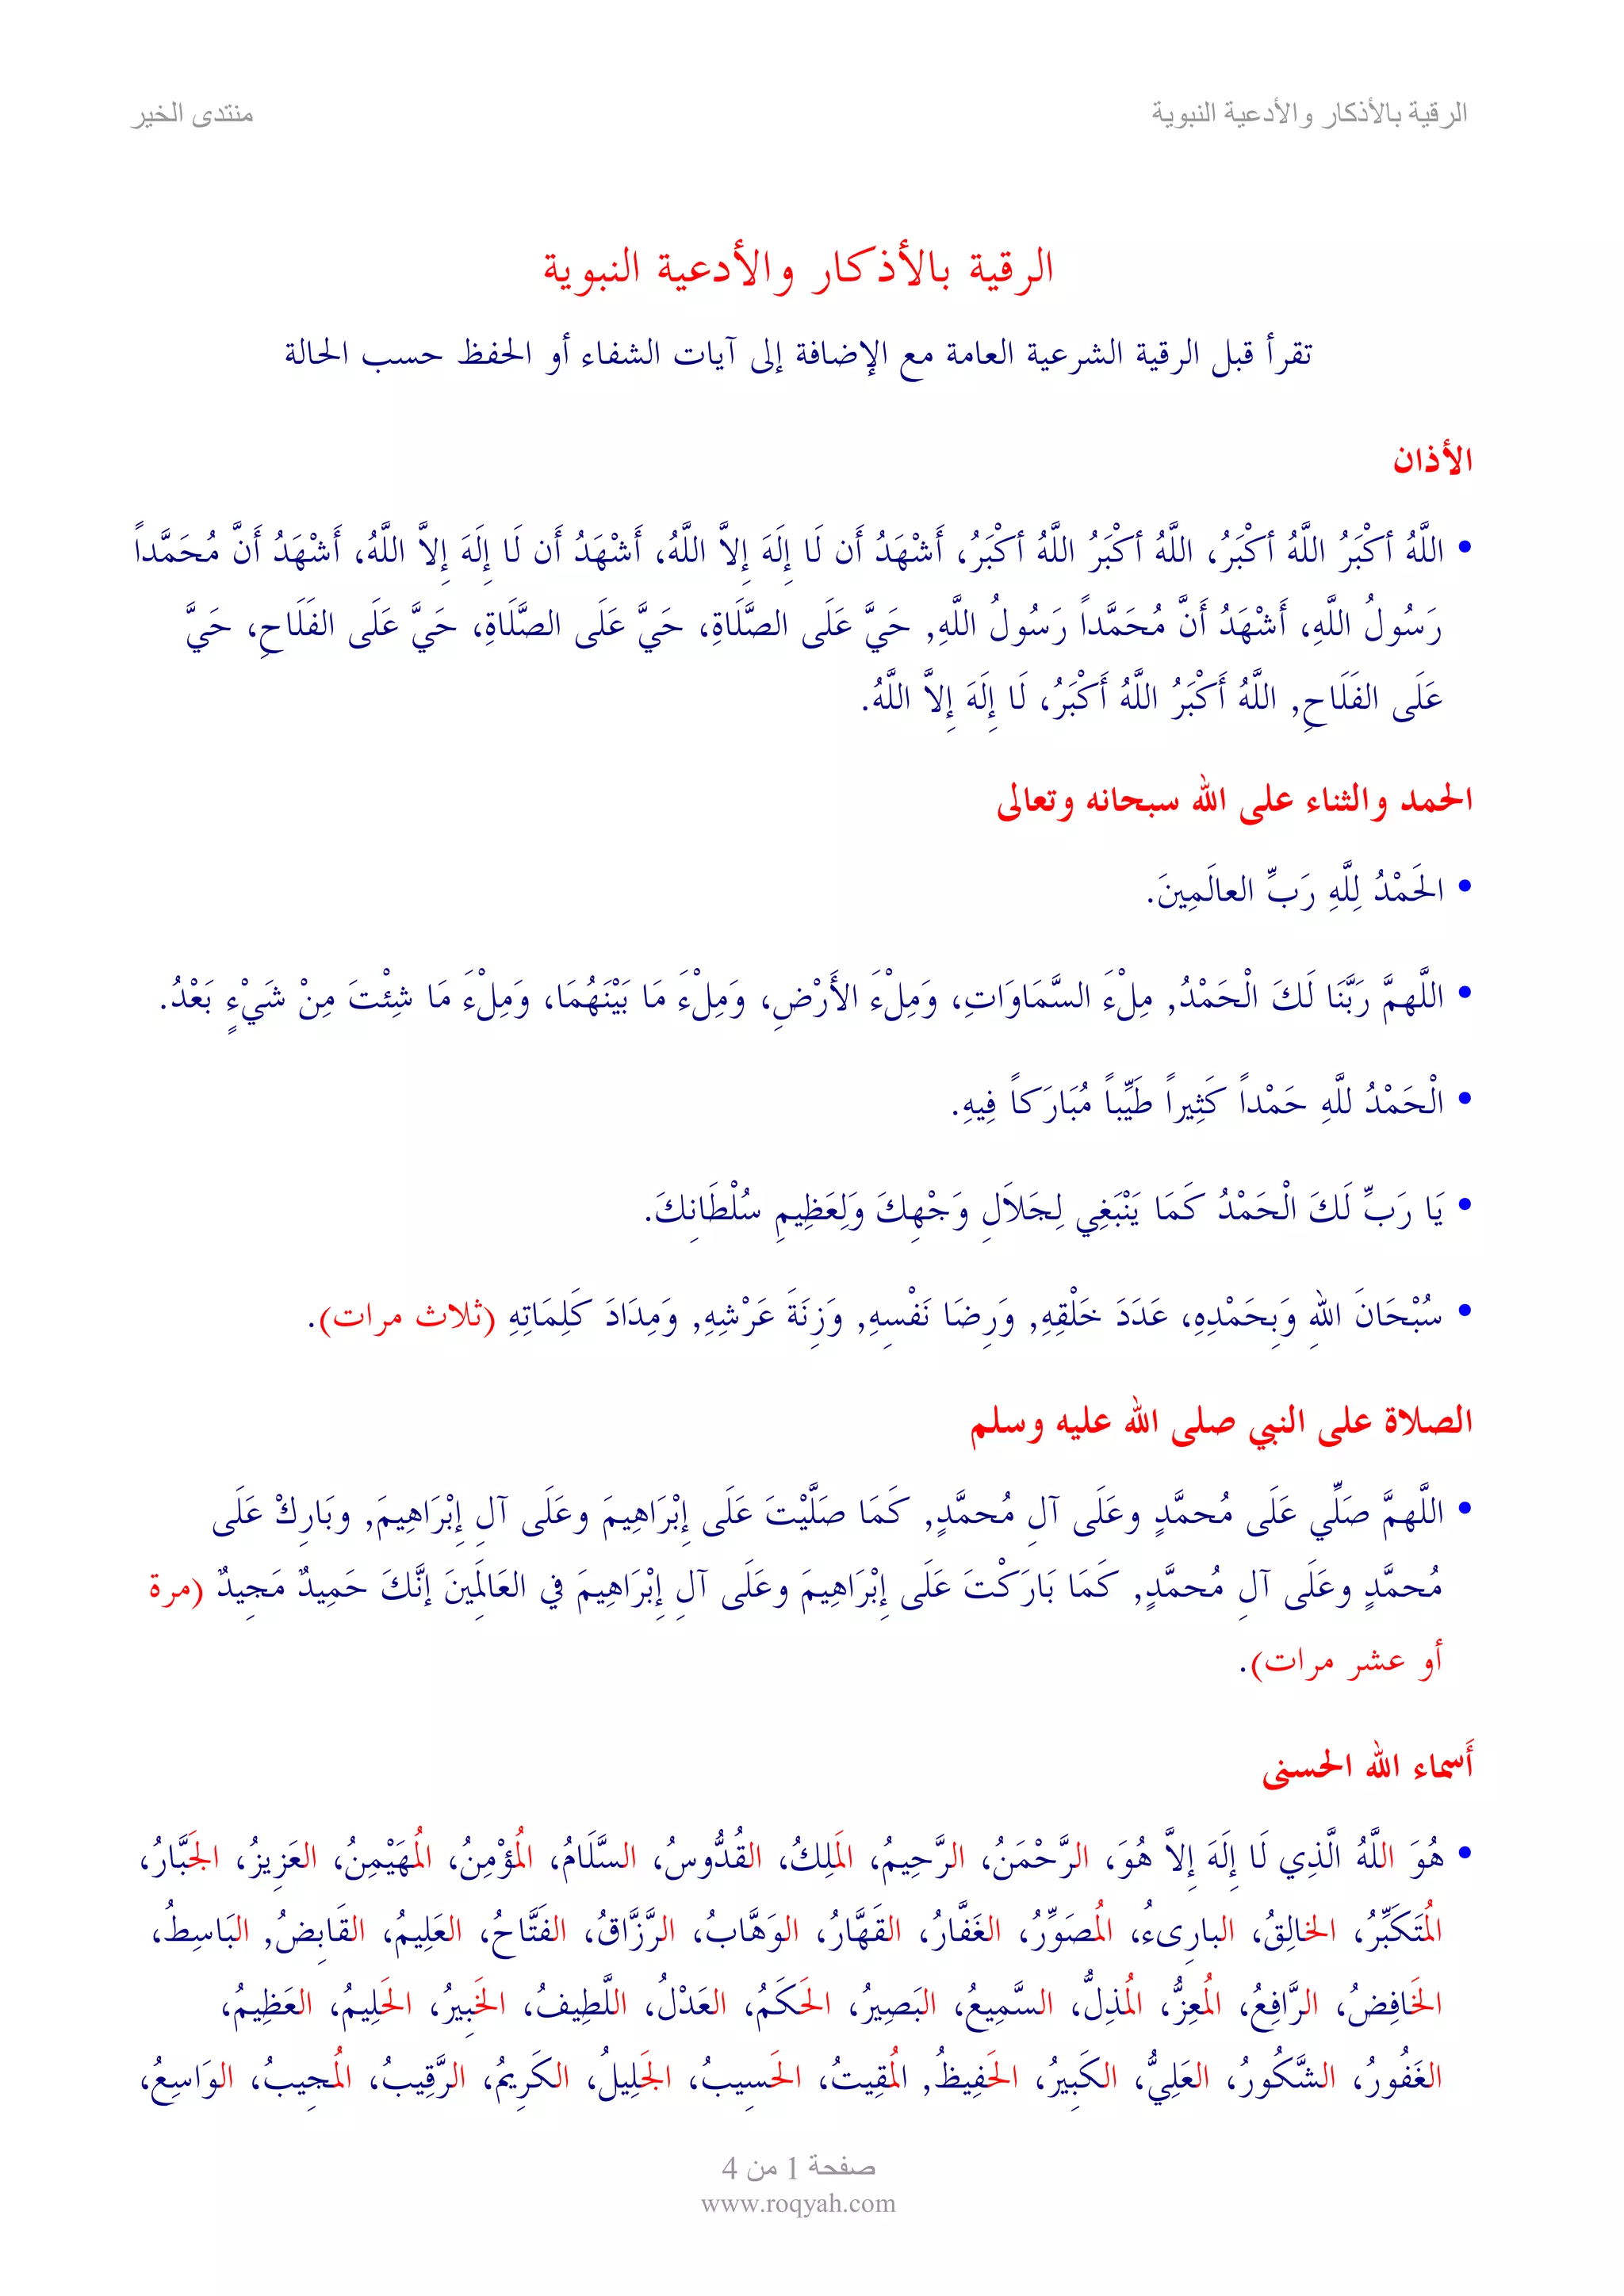 الرقية بالأذكار والأدعية النبوية
منتدى الخير
الرقية بالأذكار والأدعية النبوية
تقرأ قبل الرقية الشرعية العامة مع الإضافة إلى آيات الشفاء أو الحفظ حسب الحالة
الأذان
• اللَّهُ أكْبَرُ اللَّهُ أكْبَرُ، اللَّهُ أكْبَرُ اللَّهُ أكْبَرُ، أَشْهَدُ أَن لَا إِلَهَ إِلاَّ اللَّهُ، أَشْهَدُ أَن لَا إِلَهَ إِلاَّ اللَّهُ، أَشْهَدُ أَنَّ مُحَمَّداً
رَسُولُ اللَّهِ، أَشْهَدُ أَنَّ مُحَمَّداً رَسُولُ اللَّهِ, حَيَّ عَلَى الصَّلَاةِ، حَيَّ عَلَى الصَّلَاةِ، حَيَّ عَلَى الفَلَاحِ، حَيَّ
عَلَى الفَلَاحِ, اللَّهُ أَكْبَرُ اللَّهُ أَكْبَرُ، لَا إِلَهَ إِلاَّ اللَّهُ.
الحمد والثناء على الله سبحانه وتعالى
• الحَمْدُ لِلَّهِ رَبِّ العالَمِينَ.
• اللَّهمَّ رَبَّنَا لَكَ الْحَمْدُ, مِلْءَ السَّمَاوَاتِ، وَمِلْءَ الأَرْضِ، وَمِلْءَ مَا بَيْنَهُمَا، وَمِلْءَ مَا شِئْتَ مِنْ شَيْءٍ بَعْدُ.
• الْحَمْدُ للَّهِ حَمْداً كَثِيراً طَيِّباً مُبَارَكاً فِيهِ.
• يَا رَبِّ لَكَ الْحَمْدُ كَمَا يَنْبَغِي لِجَلاَلِ وَجْهِكَ وَلِعَظِيمِ سُلْطَانِكَ.
• سُبْحَانَ اللهِ وَبِحَمْدِهِ، عَدَدَ خَلْقِهِ, وَرِضَا نَفْسِهِ, وَزِنَةَ عَرْشِهِ, وَمِدَادَ كَلِمَاتِهِ (ثلاث مرات).
الصلاة على النبي صلى الله عليه وسلم
• اللَّهمَّ صَلِّي عَلَى مُحمَّدٍ وعَلَى آلِ مُحمَّدٍ, كَمَا صَلَّيْتَ عَلَى إِبْرَاهِيمَ وعَلَى آلِ إِبْرَاهِيمَ, وبَارِكْ عَلَى
مُحمَّدٍ وعَلَى آلِ مُحمَّدٍ, كَمَا بَارَكْتَ عَلَى إِبْرَاهِيمَ وعَلَى آلِ إِبْرَاهِيمَ في العَالَمِينَ إنَّكَ حَمِيدٌ مَجِيدٌ (مرة
أو عشر مرات).
أَسماء الله الحسنى
• هُوَ اللَّهُ الَّذِي لَا إِلَهَ إِلاَّ هُوَ، الرَّحْمَنُ، الرَّحِيمُ، المَلِكُ، القُدُّوسُ، السَّلَامُ، المُؤْمِنُ، المُهَيْمِنُ، العَزِيزُ، الجَبَّارُ،
المُتَكَبِّرُ، الخالِقُ، البارِىءُ، المُصَوِّرُ، الغَفَّارُ، القَهَّارُ، الوَهَّابُ، الرَّزَّاقُ، الفَتَّاحُ، العَلِيمُ، القَابِضُ, البَاسِطُ،
الخَافِضُ، الرَّافِعُ، المُعِزُّ، المُذِلُّ، السَّمِيعُ، البَصِيرُ، الحَكَمُ، العَدْلُ، اللَّطِيفُ، الخَبِيرُ، الحَلِيمُ، العَظِيمُ،
الغَفُورُ، الشَّكُورُ، العَلِيُّ، الكَبِيرُ، الحَفِيظُ, المُقِيتُ، الحَسِيبُ، الجَلِيلُ، الكَرِيمُ، الرَّقِيبُ، المُجِيبُ، الوَاسِعُ،
صفحة 1 من 4
www.roqyah.com